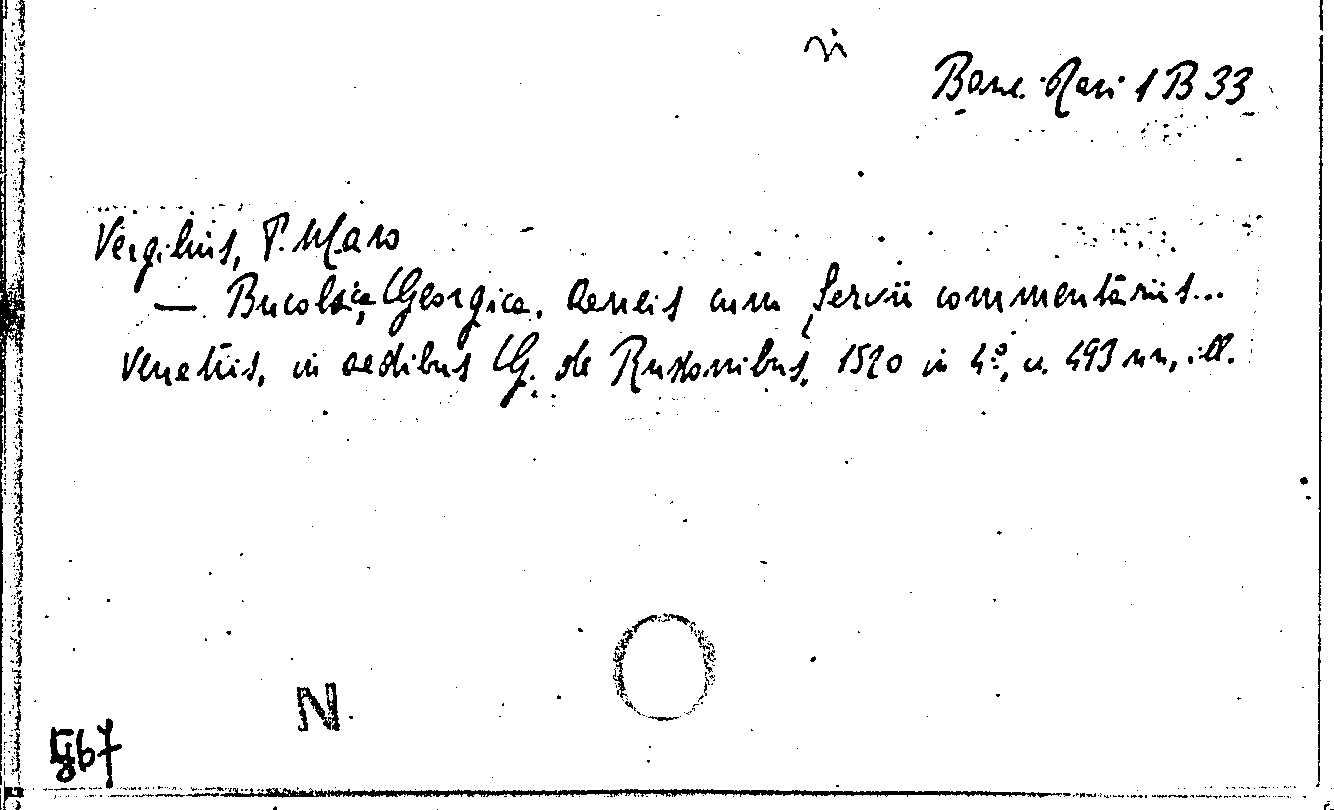 Banc. Rari 1 B 33
Vergilius, P. Maro
— Bucolica, Georgica, Aeneis cum Servii commentariis...
Venetiis, in aedibus G. de Rusconibus, 1520 in 4°, c. 493 nn, ill.
N